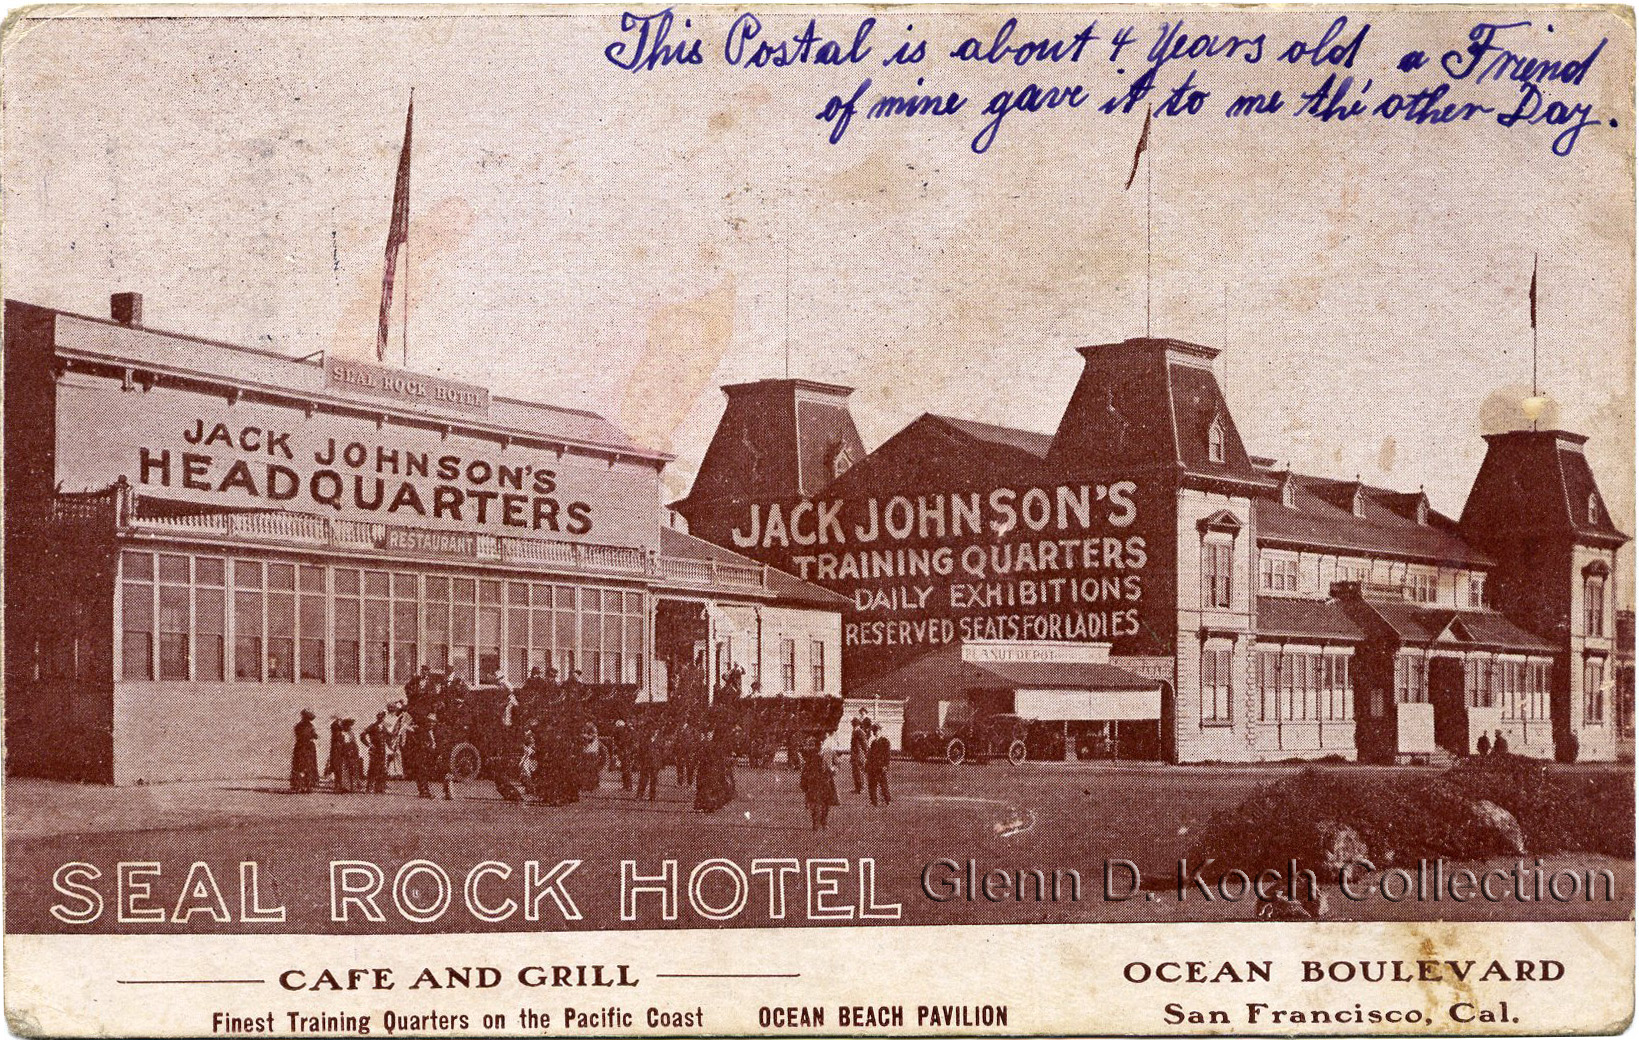 This Postal is about 4 Years old a Friend
of mine gave it to me the other Day.
SEAL ROCK HOTEL
JACK JOHNSON'S
HEADQUARTERS
RESTAURANT
JACK JOHNSON'S
TRAINING QUARTERS
DAILY EXHIBITIONS
RESERVED SEATS FOR LADIES
PEANUT DEPOT
SEAL ROCK HOTEL
Glenn D. Koch Collection
CAFE AND GRILL
Finest Training Quarters on the Pacific Coast
OCEAN BEACH PAVILION
OCEAN BOULEVARD
San Francisco, Cal.